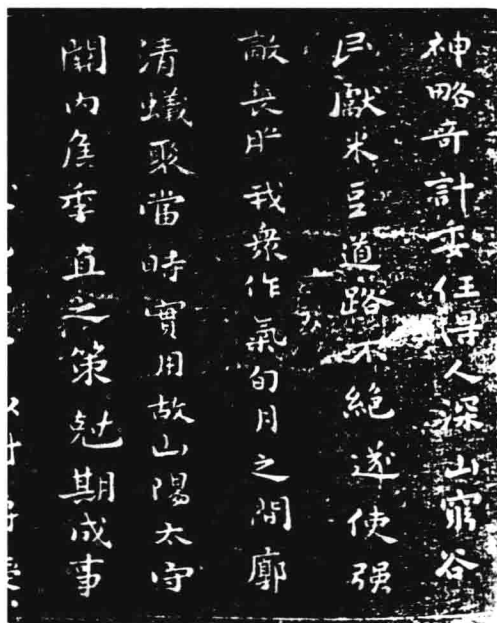 神略奇計委任得人深山窮谷
民獻米豆道路不絕遂使强
敵喪膽我衆作氣旬月之間廓
清蟻聚當時實用故山陽太守
關內侯季直之策尅期成事